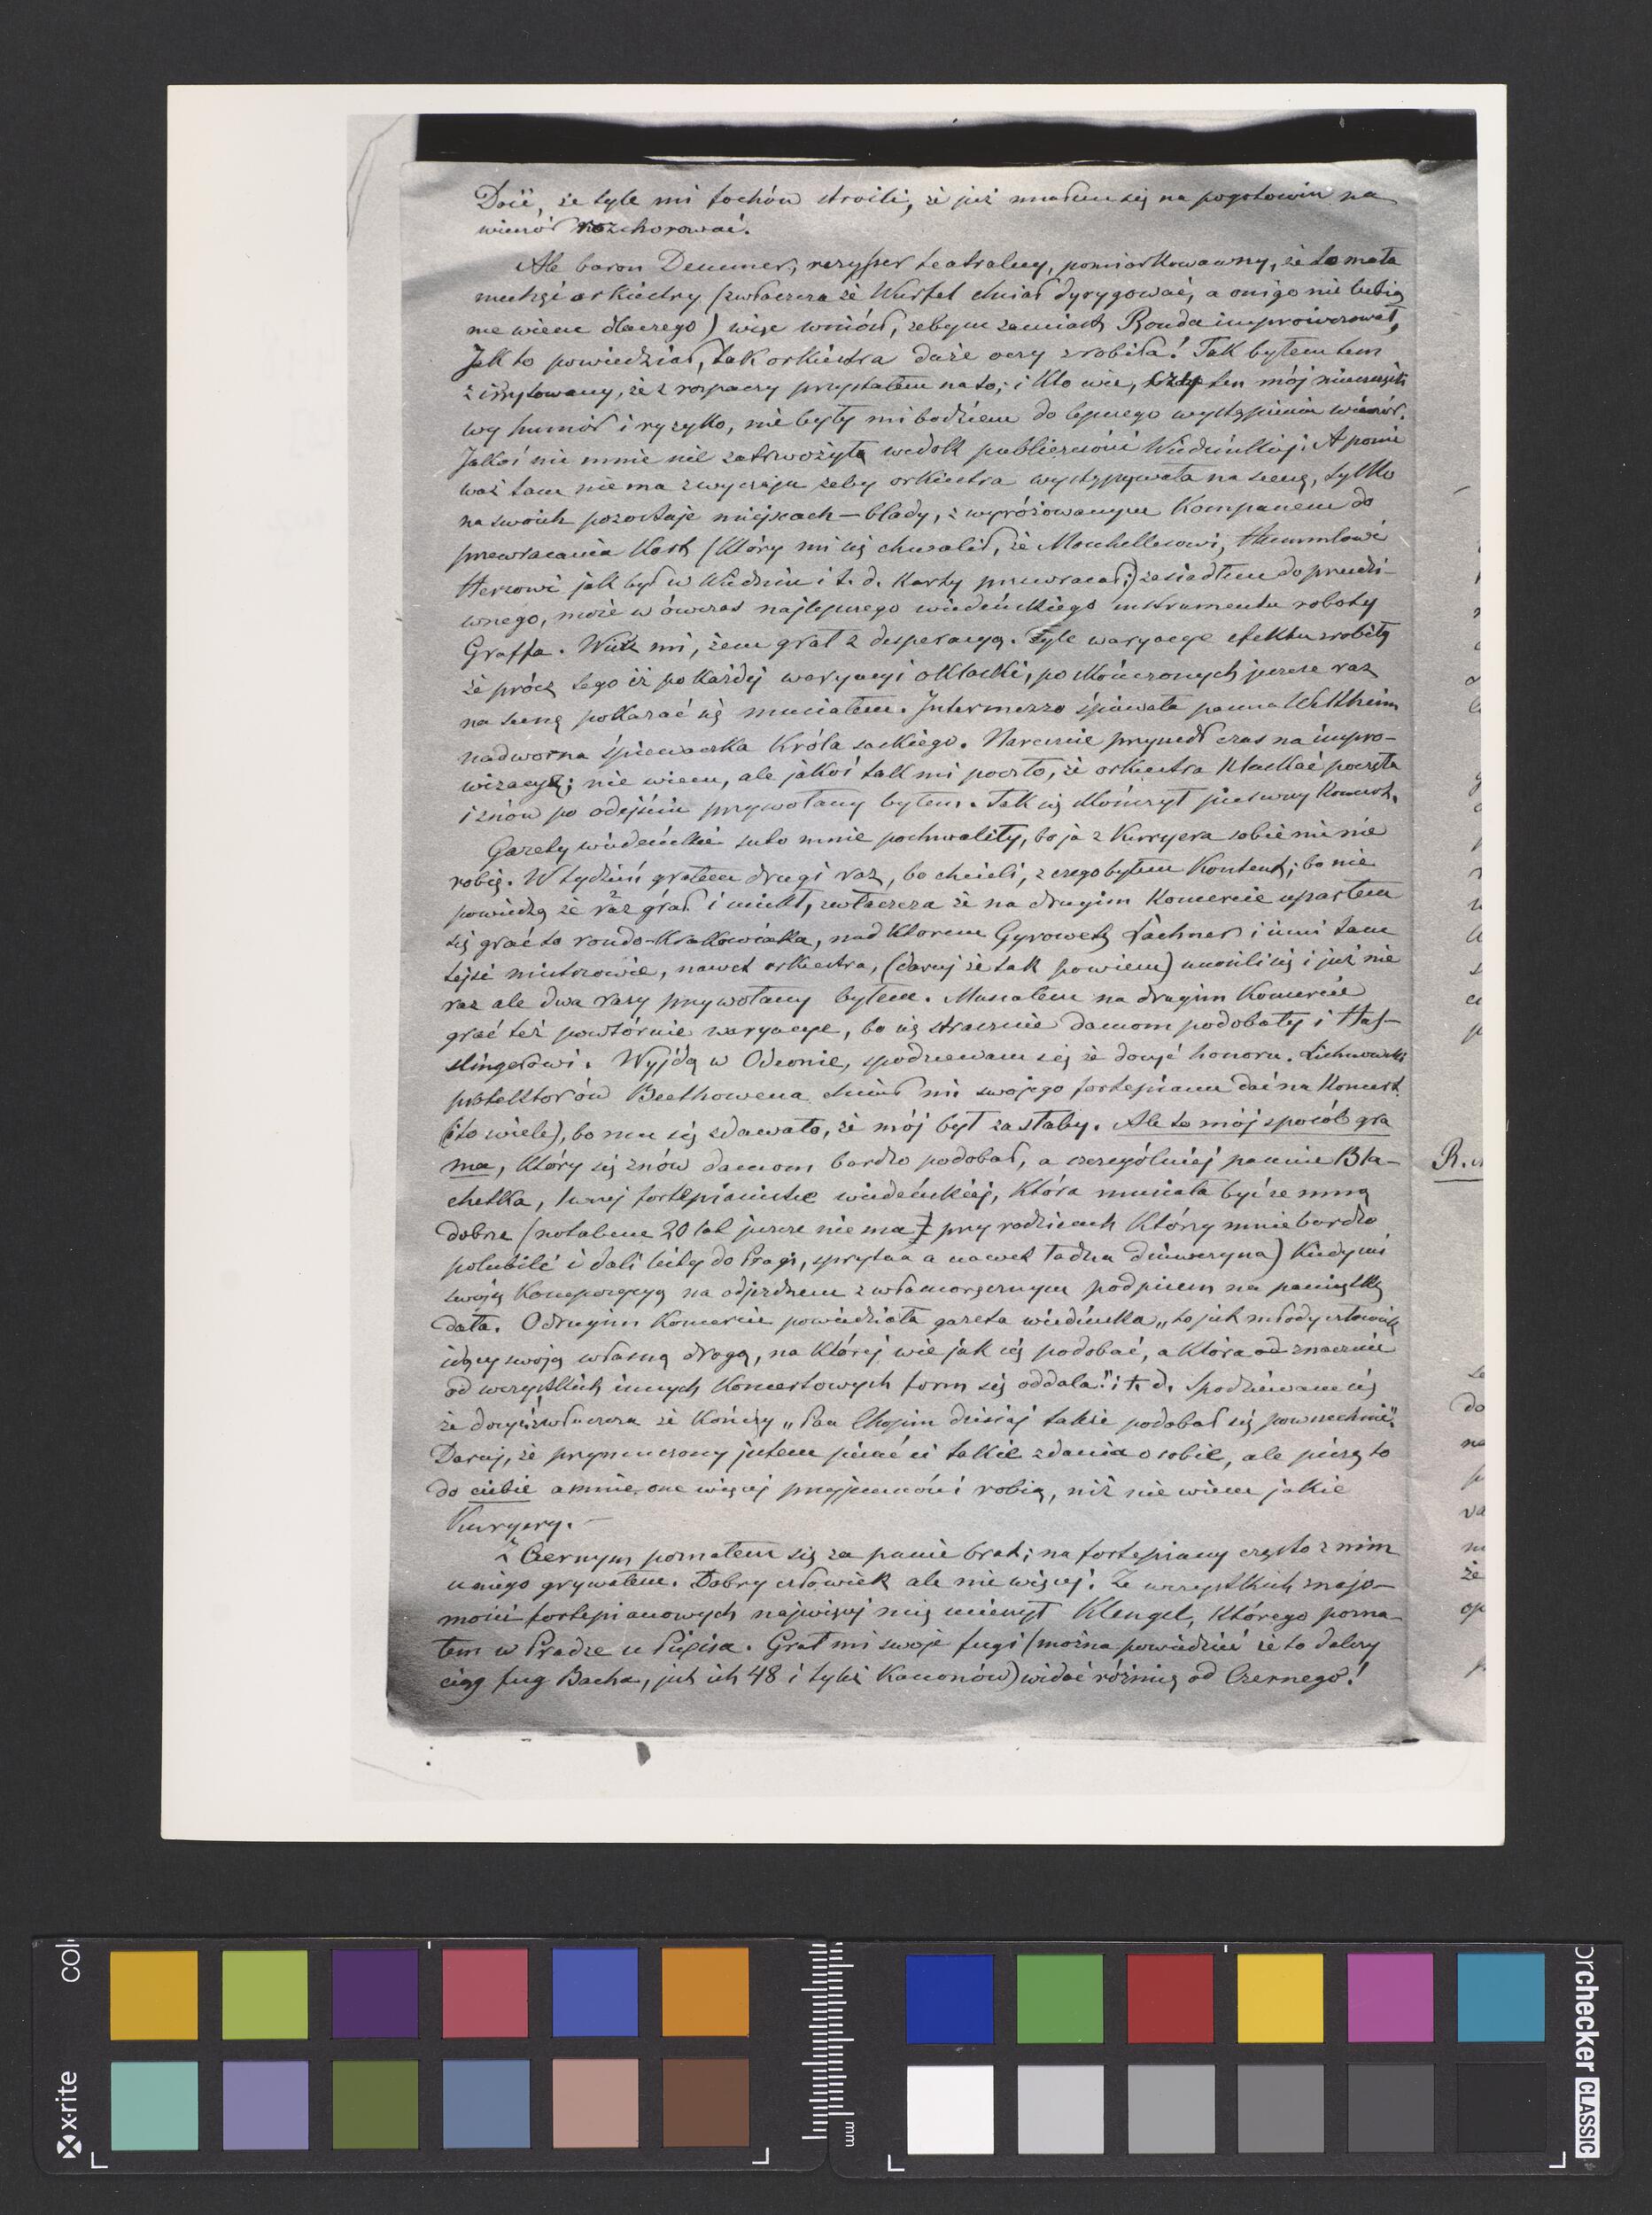 Dość, że tyle mi fochów stroili, że już miałem się na pogotowiu na
wieczór rozchorować.
Ale baron Demmer, reżyser teatralny, pomiarkowawszy, że to mała
niechęć orkiestry (zwłaszcza że Würfel chciał dyrygować, a oni go nie lubią
nie wiem dlaczego) więc wniósł, żebym zamiast Ronda improwizował,
Jak to powiedział, tak orkiestra duże oczy zrobiła! Tak byłem tem
zirytowany, że z rozpaczy przystałem na to; i kto wie, czy ten mój nieszczęśli
wy humor i ryzyko, nie były mi bodźcem do lepszego wystąpienia wieczór.
Jakoś nie mnie nie zatrwożyła widok publiczności Wiedeńskiej. A ponie
waż tam niema zwyczaju żeby orkiestra występywała na scenę, tylko
na swoich pozostaje miejscach — blady, z wyróżowanym Kompanem do
przewracania Kart (który mi się chwalił, że Moschellesowi, Hummlowi
Hercowi jak był w Wiedniu i t. d. Karty przewracał;) zasiadłem do przedzi-
wnego, może w ówczas najlepszego wiedeńskiego instrumentu roboty
Graffa. Wierz mi, żem grał z desperacyą. Tyle waryacye efektu zrobiły
że prócz tego iż po każdej waryacyi oklaski, po skończonych jeszcze raz
na scenę pokazać się musiałem. Intermezzo śpiewała panna Veltheim
nadworna śpiewaczka Króla saskiego. Nareszcie przyszedł czas na impro-
wizacyę; nie wiem, ale jakoś tak mi poszło, że orkiestra klaskać poczęła
i znów po odejściu przywołany byłem. Tak się skończył pierwszy Koncert.
Gazety wiedeńskie suto mnie pochwaliły, bo ja z Kurryera sobie nic nie
robię. W tydzień grałem drugi raz, bo chcieli, z czego byłem Kontent; bo nie
powiedzą że raz grał i uciekł, zwłaszcza że na drugim Koncercie uparłem
się grać to rondo-Krakowiaka, nad którem Gyrowetz Lachner i inni tam
tejsi mistrzowie, nawet orkiestra, (daruj że tak powiem) unosili się i już nie
raz ale dwa razy przywołany byłem. Musiałem na drugim Koncercie
grać też powtórnie waryacye, bo się strasznie damom podobały i Has-
slingerowi. Wyjdą w Odeonie, spodziewam się że dosyć honoru. Lichnowski
protektorów Beethowena chciał mi swojego fortepianu dać na Koncert
(to wiele), bo mu się zdawało, że mój był za słaby. Ale to mój sposób gra
nia, który się znów damom bardzo podobał, a szczególniej pannie Bla-
chetka, 1wszej fortepianistce wiedeńskiej, która musiała być ze mną
dobrze (notabene 20 lat jeszcze nie ma przy rodzicach którzy mnie bardzo
polubili i dali listy do Pragi, sprytna a nawet ładna dziewczyna) kiedy mi
swoją Kompozycyą na odjezdnem z własnoręcznym podpisem na pamiątkę
dała. O drugim Koncercie powiedziała gazeta wiedeńska „to jest młody człowiek
idący swoją własną drogą, na której wie jak się podobać, a która od znacznie
od wszystkich innych Koncertowych form się oddala." i t. d. Spodziewam się
że dosyć zwłaszcza że Kończy „Pan Chopin dzisiaj także podobał się powszechnie".
Daruj, że przymuszony jestem pisać ci takie zdania o sobie, ale piszę to
do ciebie a mnie one więcej przyjemności robią, niż nie wiem jakie
Kuryery. —
Z Czernym poznałem się za panie brat; na fortepiany często z nim
u niego grywałem. Dobry człowiek ale nie więcej! Ze wszystkich znajo-
mości fortepianowych najwięcej mię ucieszył Klengel, którego pozna-
łem w Pradze u Pixisa. Grał mi swoje fugi (można powiedzieć że to dalszy
ciąg fug Bacha, jest ich 48 i tyleż Kanonów) widać różnicę od Czernego!